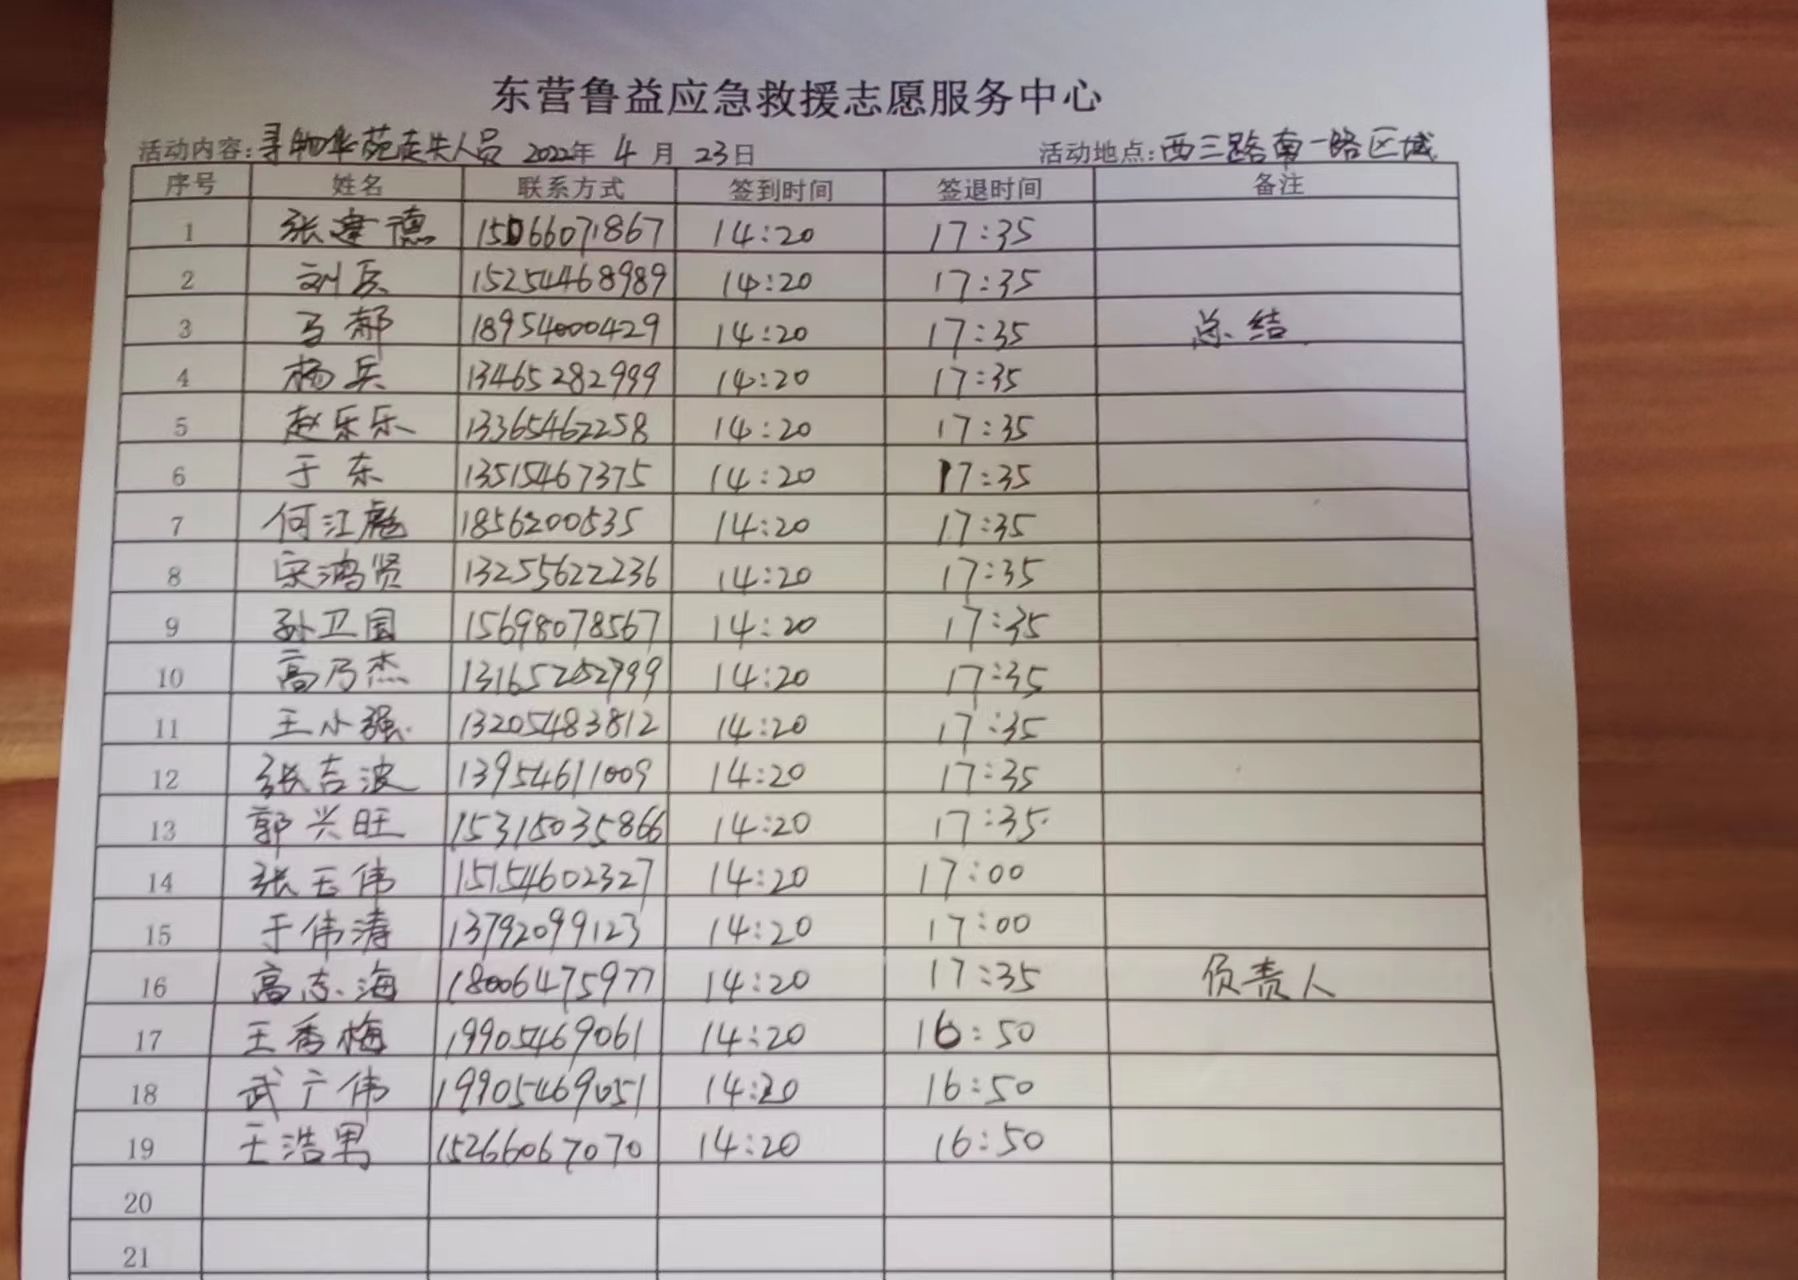 东营鲁益应急救援志愿服务中心
活动内容:寻物华苑走失人员 2022年 4 月 23日 活动地点:西三路南一路区域
序号 姓名 联系方式 签到时间 签退时间 备注
1 张建德 15066071867 14:20 17:35
2 刘兵 15254468989 14:20 17:35
3 马郝 18954000429 14:20 17:35 总结
4 杨兵 13465282999 14:20 17:35
5 赵乐乐 13365462258 14:20 17:35
6 于东 13515467375 14:20 17:35
7 何江彪 1856200535 14:20 17:35
8 宋鸿贤 13255622236 14:20 17:35
9 孙卫国 15698078567 14:20 17:35
10 高乃杰 13165252999 14:20 17:35
11 王小强 13205483812 14:20 17:35
12 张吉波 13954611009 14:20 17:35
13 郭兴旺 15315035866 14:20 17:35
14 张玉伟 15154602327 14:20 17:00
15 于伟涛 13792099123 14:20 17:00
16 高志海 18006475977 14:20 17:35 负责人
17 王秀梅 19905469061 14:20 16:50
18 武广伟 19905469051 14:20 16:50
19 王浩男 15266067070 14:20 16:50
20
21